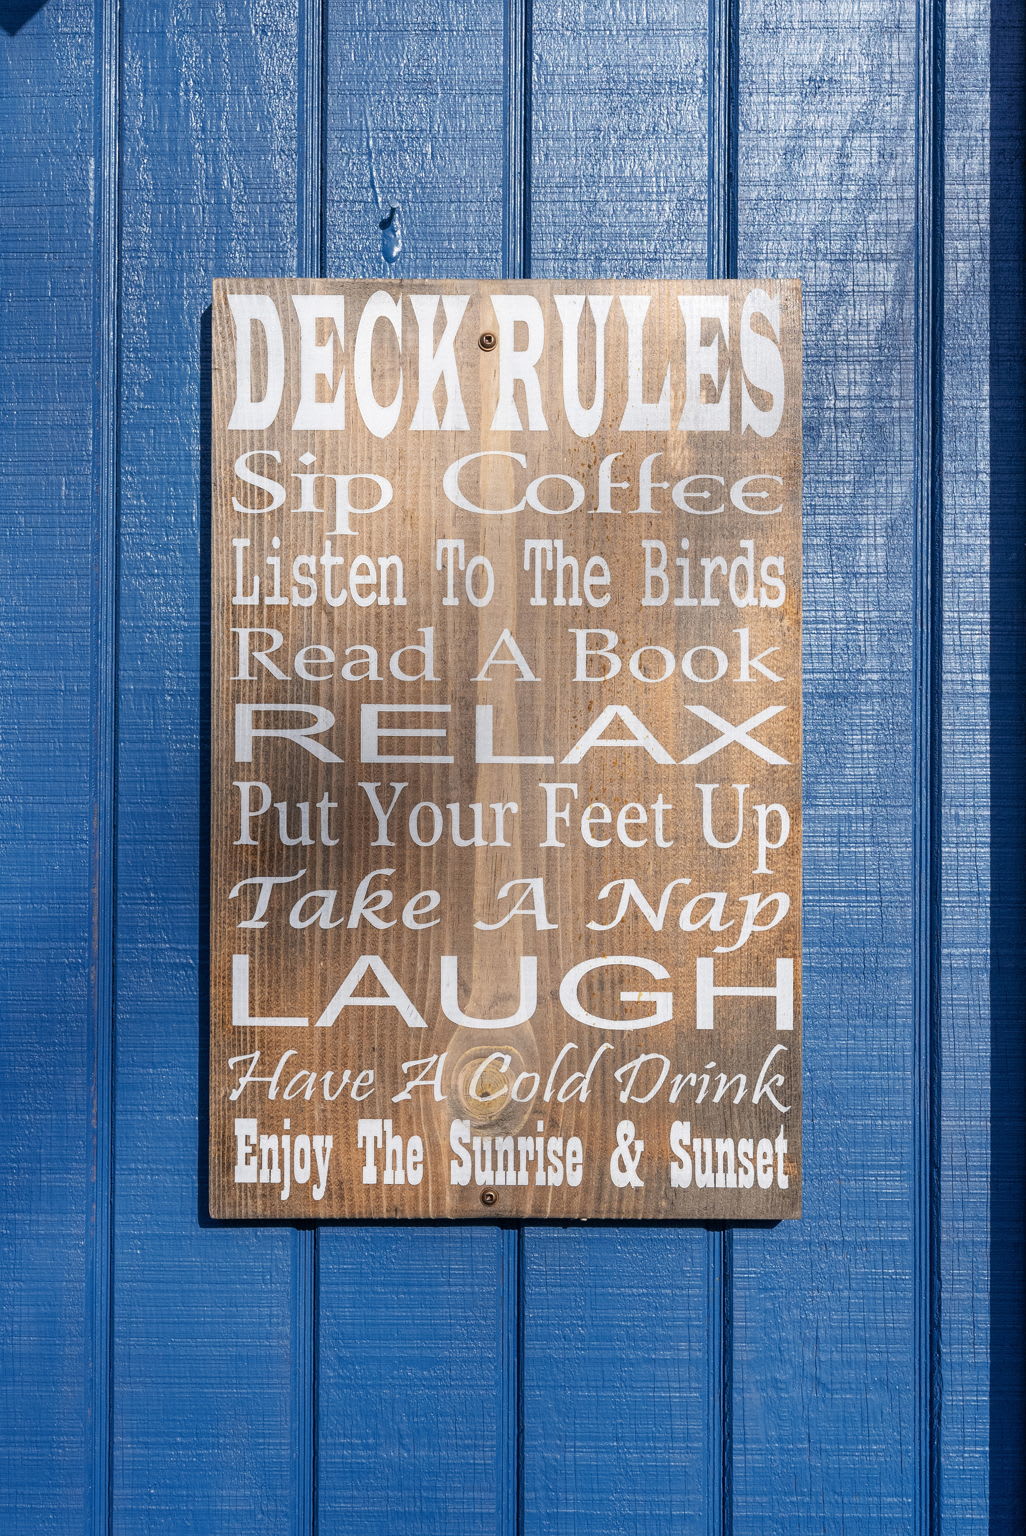 DECK RULES
Sip Coffee
Listen To The Birds
Read A Book
RELAX
Put Your Feet Up
Take A Nap
LAUGH
Have A Cold Drink
Enjoy The Sunrise & Sunset